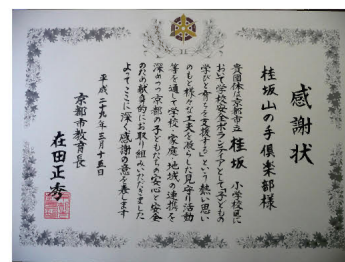 感謝状
桂坂山の手倶楽部様
貴団体は京都市立 桂坂 小学校区に
おいて学校安全ボランティアとして「子どもの
学びと育ちを支援する」という熱い思い
のもと様々な工夫を凝らした見守り活動
等を通して学校・家庭・地域の連携を
深めつつ京都の子どもたちの安心と安全
のため献身的にお取り組みいただきました
よってここに深く感謝の意を表します
平成二十九年三月十五日
京都市教育長
在田正秀